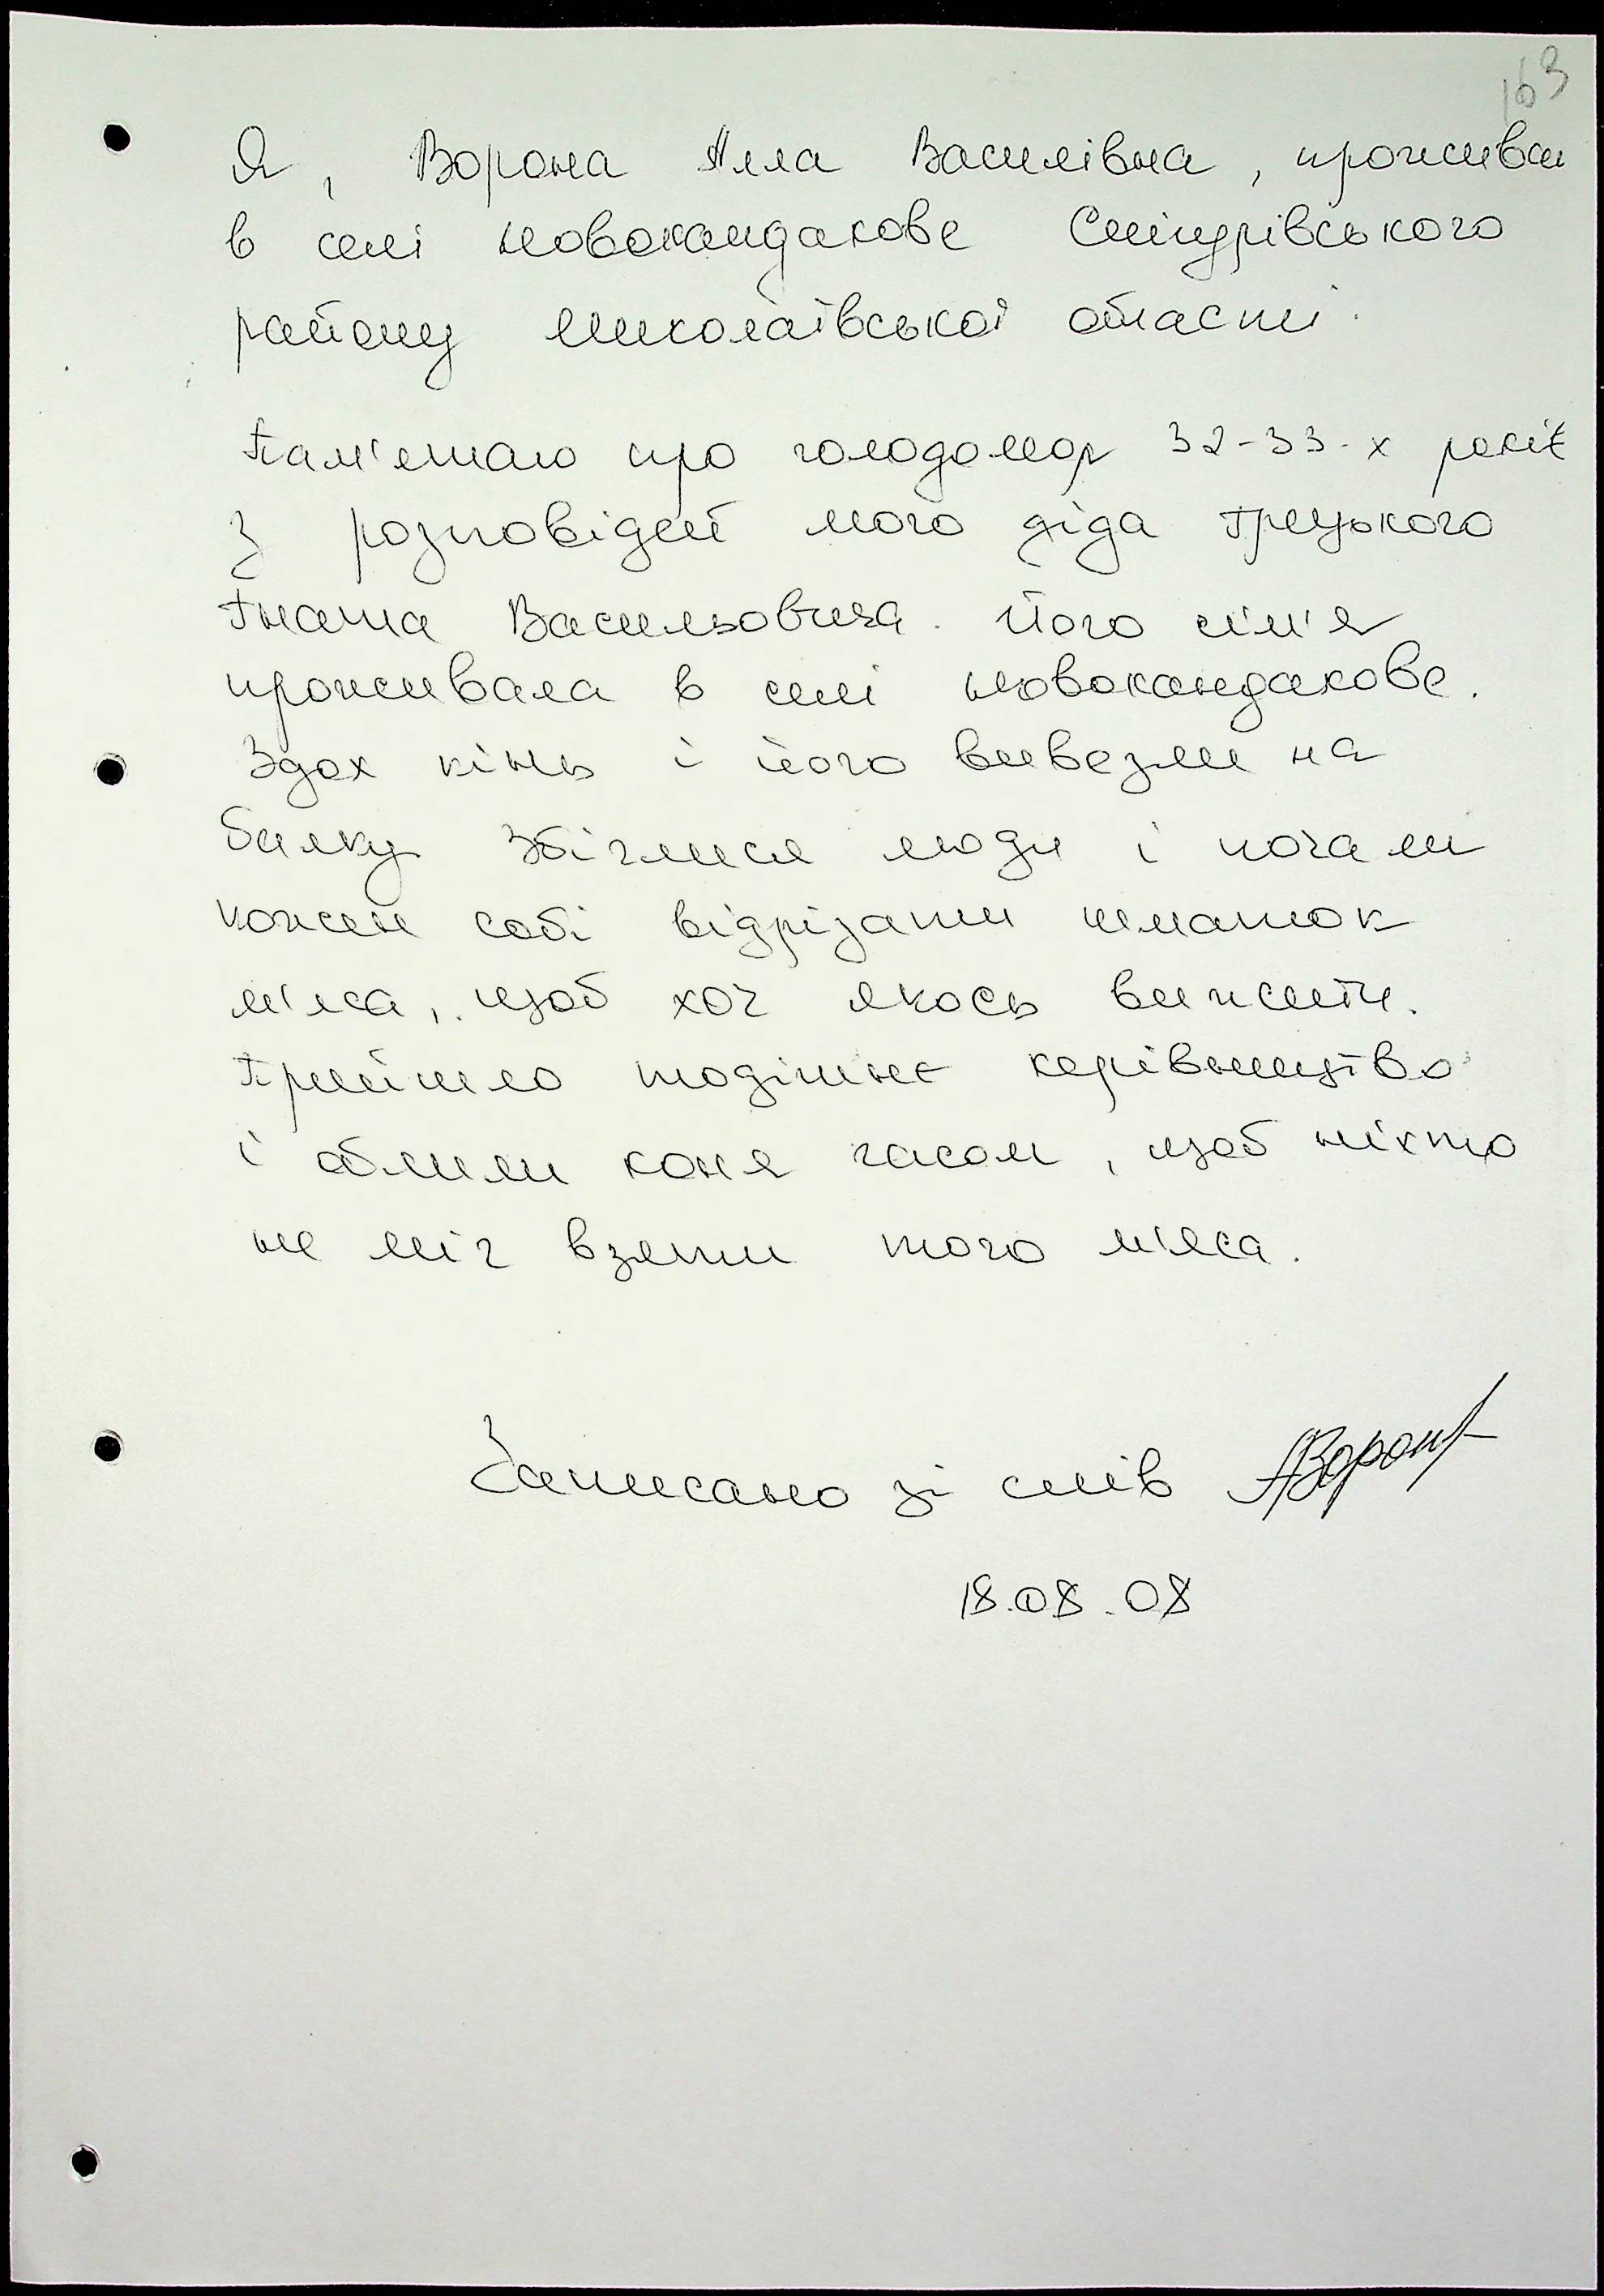 163
Я, Ворона Алла Василівна, проживаю
в селі Новокандакове Снігурівського
району Миколаївської області.
Пам'ятаю про голодомор 32-33-х років
з розповідей мого діда Грецького
Гната Васильовича. Його сім'я
проживала в селі Новокандакове.
Здох кінь і його вивезли на
балку збіглися люди і почали
кожен собі відрізати шматок
м'яса, щоб хоч якось вижити.
Прийшло тодішнє керівництво
і облили коня гасом, щоб ніхто
не міг взяти того м'яса.
Записано зі слів АВорона
18.08.08